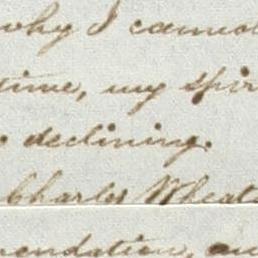 why I cannot
time, my spir
declining.
Charles Wheat
mendation, an